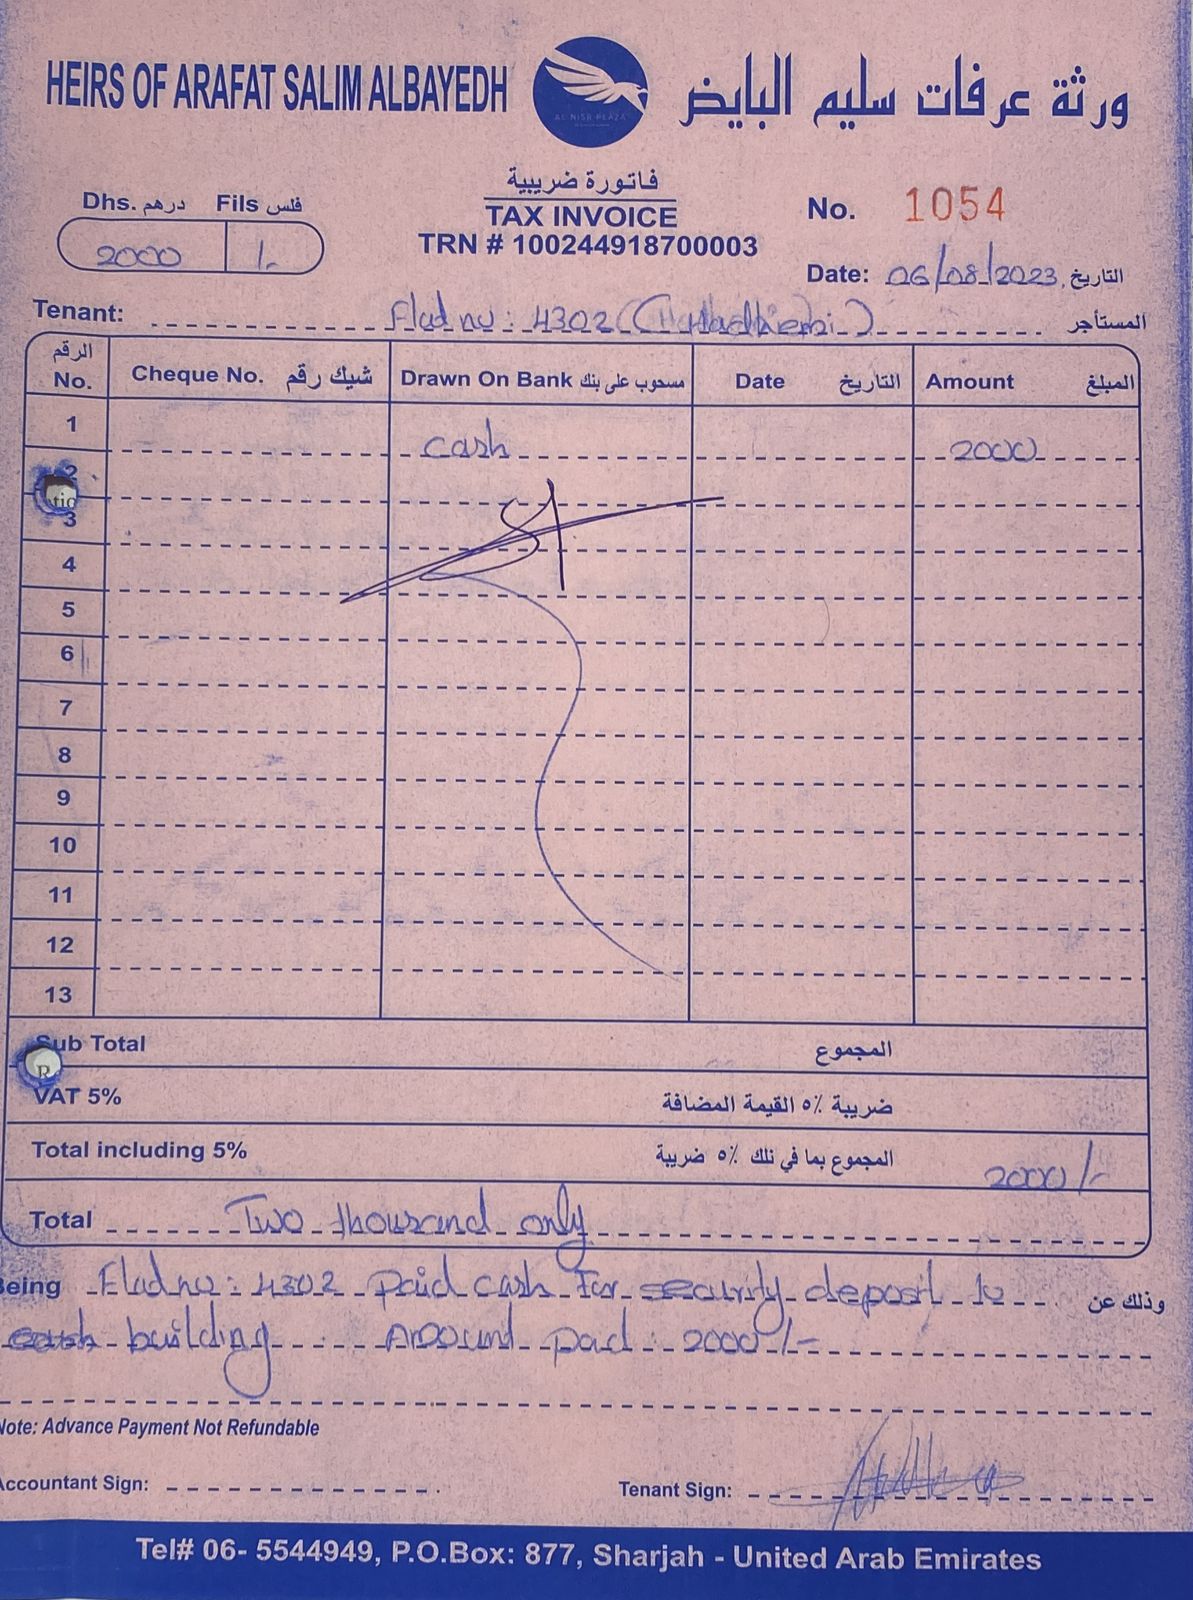 HEIRS OF ARAFAT SALIM ALBAYEDH
ورثة عرفات سليم البايض
AL NISR PLAZA
فاتورة ضريبية
TAX INVOICE
TRN # 100244918700003
Dhs. درهم Fils فلس
2000 /-
No. 1054
Date: 06/08/2023 التاريخ
Tenant: Flad no: 4302 المستأجر
الرقم No. Cheque No. شيك رقم Drawn On Bank مسحوب على بنك Date التاريخ Amount المبلغ
1 cash 2000
2
tio
3
4
5
6
7
8
9
10
11
12
13
Sub Total المجموع
R
VAT 5% ضريبة ٥٪ القيمة المضافة
Total including 5% المجموع بما في ذلك ٥٪ ضريبة 2000/-
Total Two thousand only
Being Flad no: 4302 Paid cash For security deposit to وذلك عن
building Amount paid: 2000/-
Note: Advance Payment Not Refundable
Accountant Sign:
Tenant Sign:
Tel# 06- 5544949, P.O.Box: 877, Sharjah - United Arab Emirates